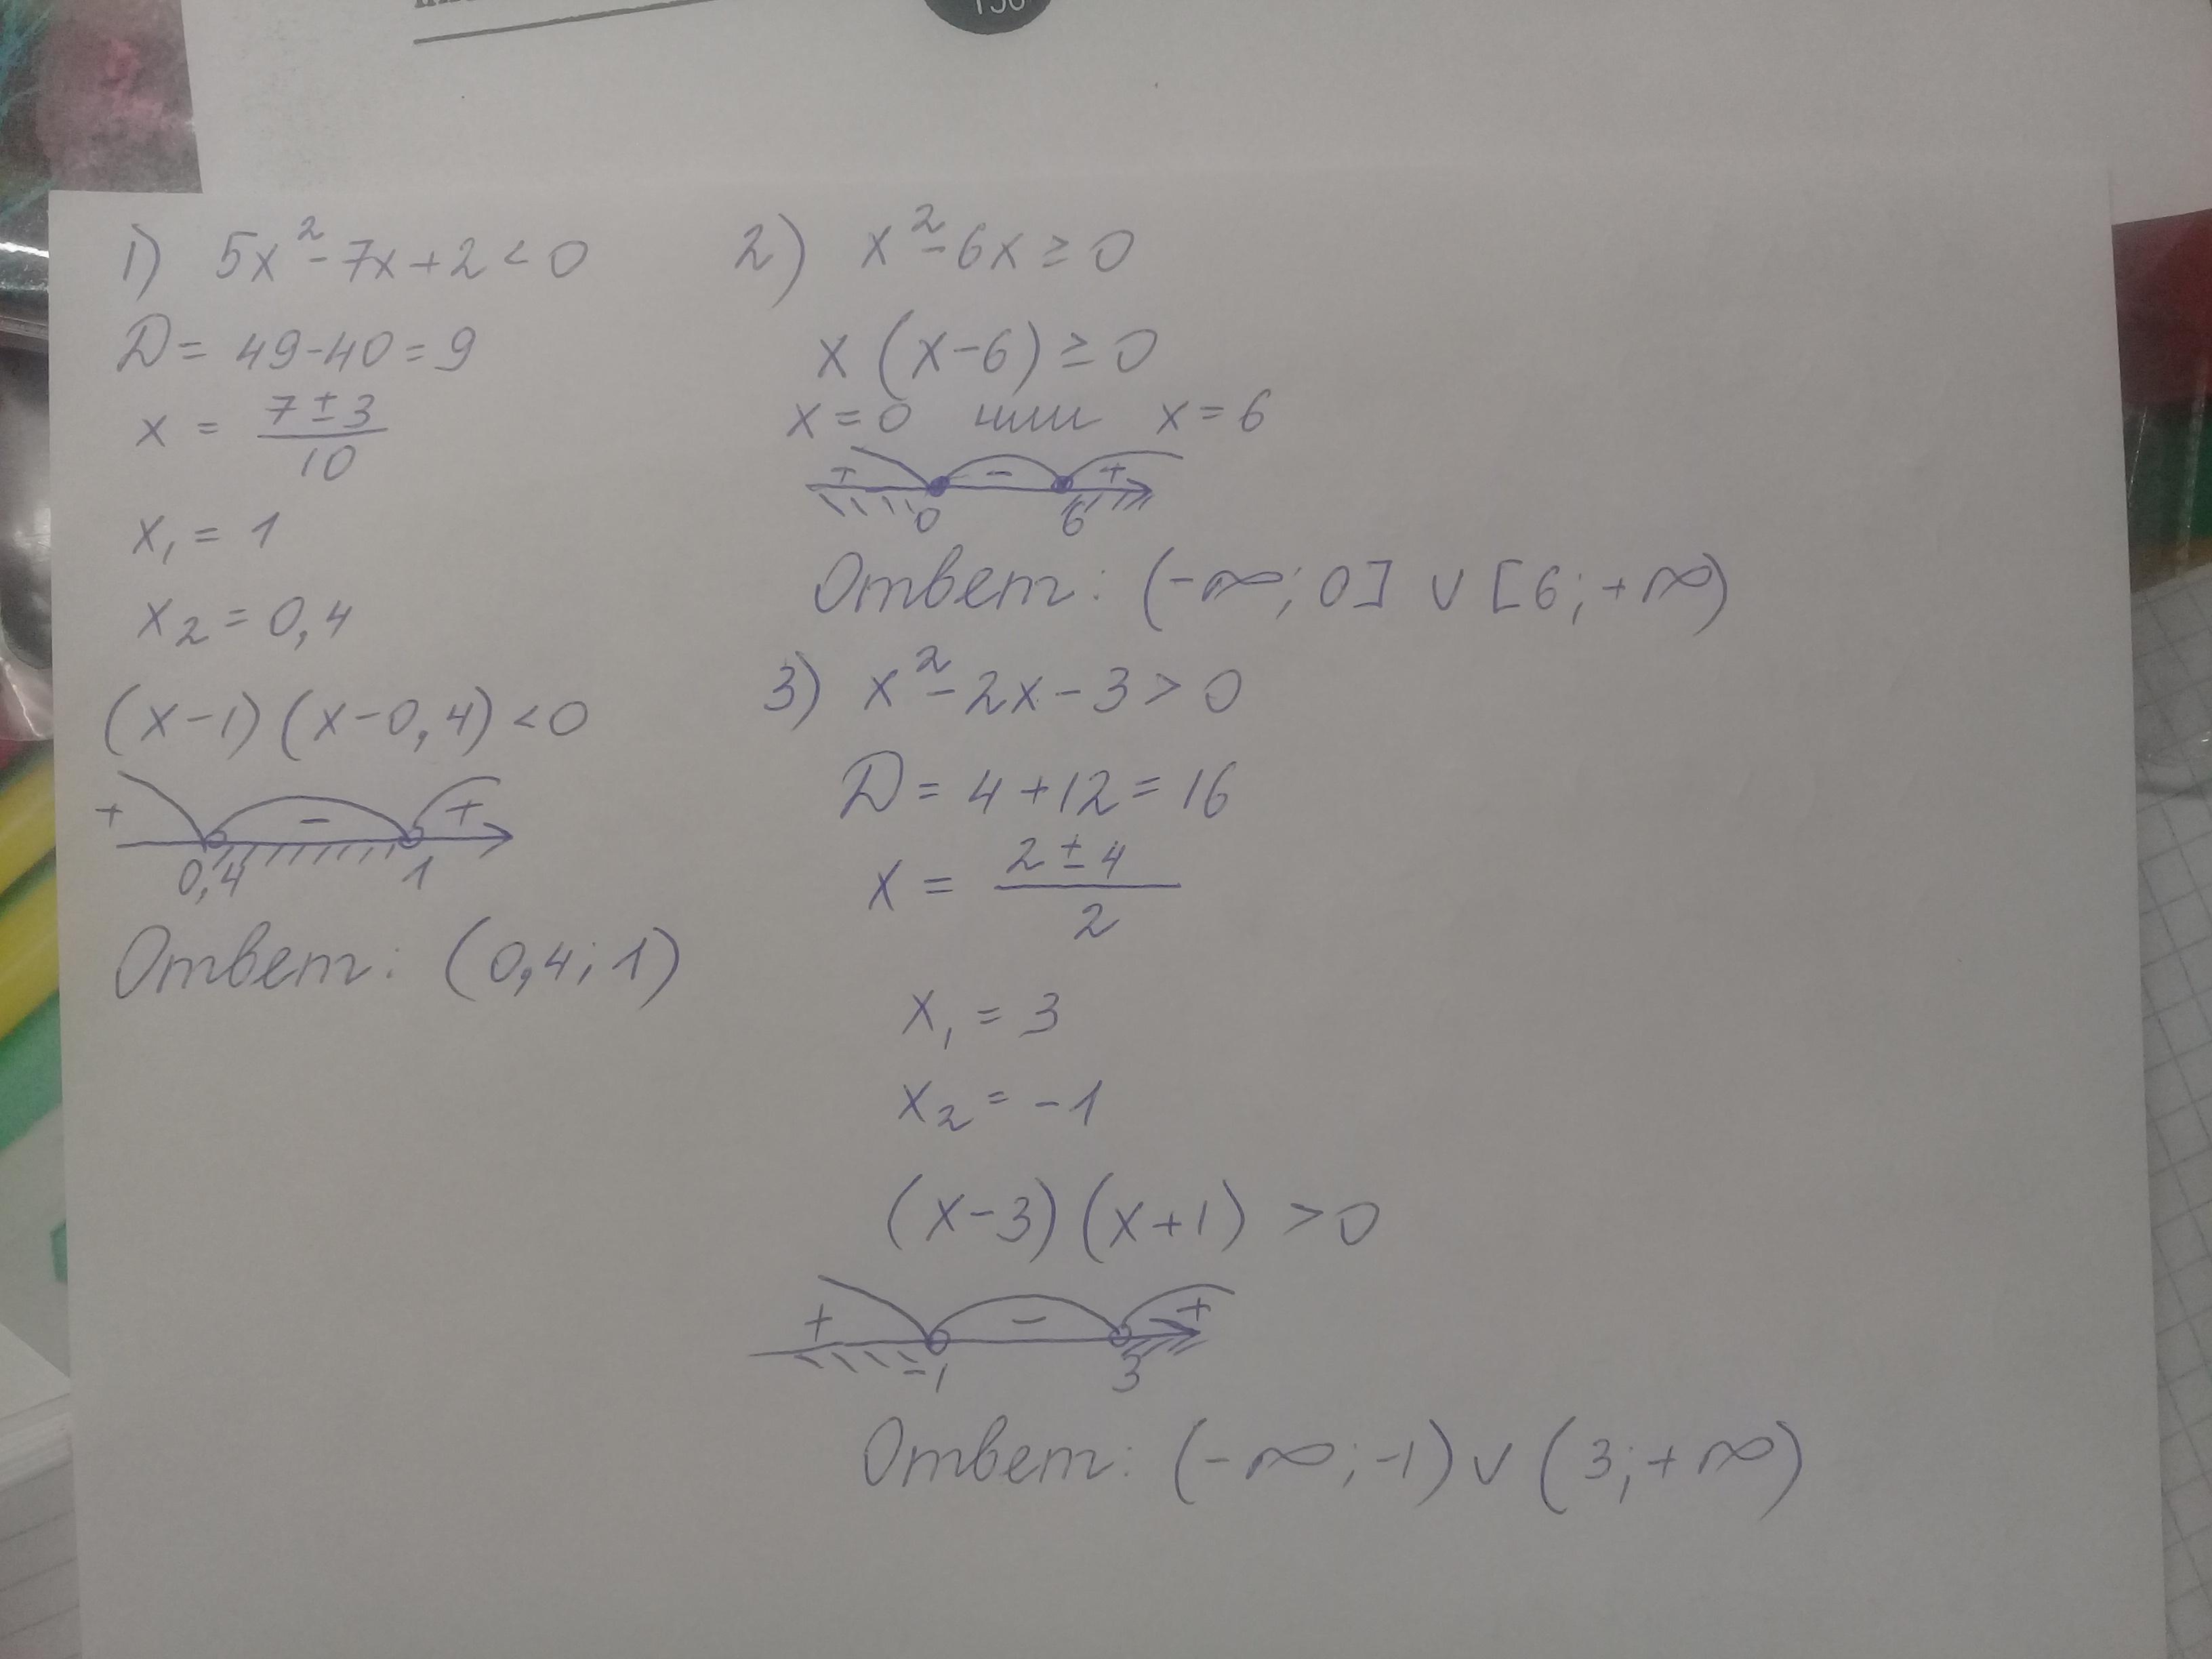 1) 5x² - 7x + 2 < 0
D = 49 - 40 = 9
x = (7 ± 3)/10
x₁ = 1
x₂ = 0,4
(x - 1) (x - 0,4) < 0
+ - +
0,4 1
Ответ: (0,4; 1)
2) x² - 6x ≥ 0
x (x - 6) ≥ 0
x = 0 или x = 6
+ - +
0 6
Ответ: (-∞; 0] ∪ [6; +∞)
3) x² - 2x - 3 > 0
D = 4 + 12 = 16
x = (2 ± 4)/2
x₁ = 3
x₂ = -1
(x - 3) (x + 1) > 0
+ - +
-1 3
Ответ: (-∞; -1) ∪ (3; +∞)